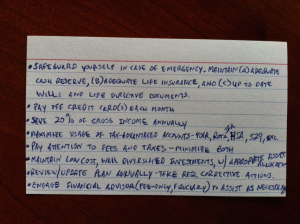 • SAFEGUARD YOURSELF IN CASE OF EMERGENCY. MAINTAIN (A) ADEQUATE
CASH RESERVE, (B) ADEQUATE LIFE INSURANCE, AND (C) UP TO DATE
WILLS AND LIFE DIRECTIVE DOCUMENTS.
• PAY OFF CREDIT CARD(S) EACH MONTH
• SAVE 20% OF GROSS INCOME ANNUALLY
• MAXIMIZE USAGE OF TAX-ADVANTAGED ACCOUNTS - 401K, ROTH, HSA, 529, ETC.
• PAY ATTENTION TO FEES AND TAXES - MINIMIZE BOTH
• MAINTAIN LOW COST, WELL DIVERSIFIED INVESTMENTS, W/ APPROPRIATE ASSET ALLOCATION
• REVIEW/UPDATE PLAN ANNUALLY - TAKE REQ. CORRECTIVE ACTIONS.
• ENGAGE FINANCIAL ADVISOR (FEE-ONLY, FIDUCIARY) TO ASSIST AS NECESSARY